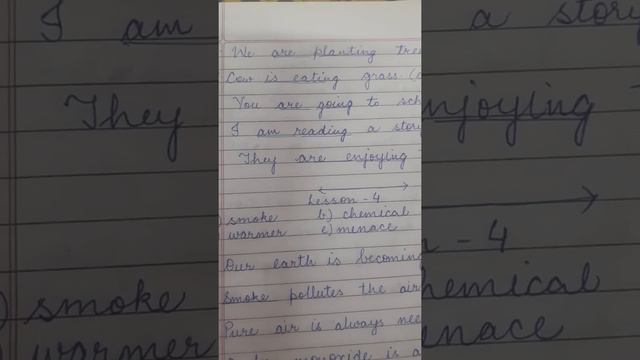 We are planting tree
Cow is eating grass. (
You are going to sch
I am reading a story
They are enjoying
Lesson - 4
smoke b) chemical
warmer c) menace
Our earth is becoming
Smoke pollutes the air
Pure air is always nee
I am a story
They enjoying
- 4
smoke hemical
warmer enace